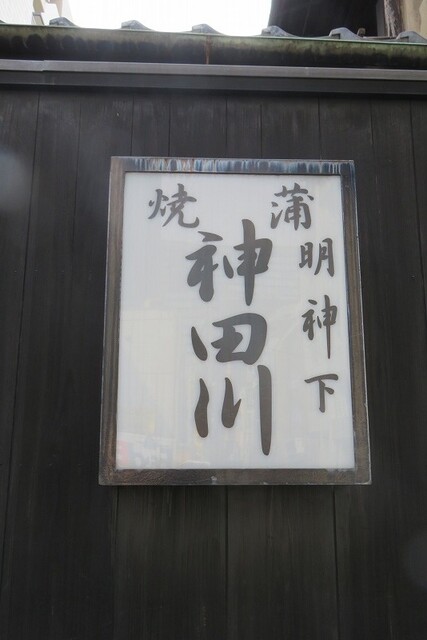 蒲焼
明神下
神田川